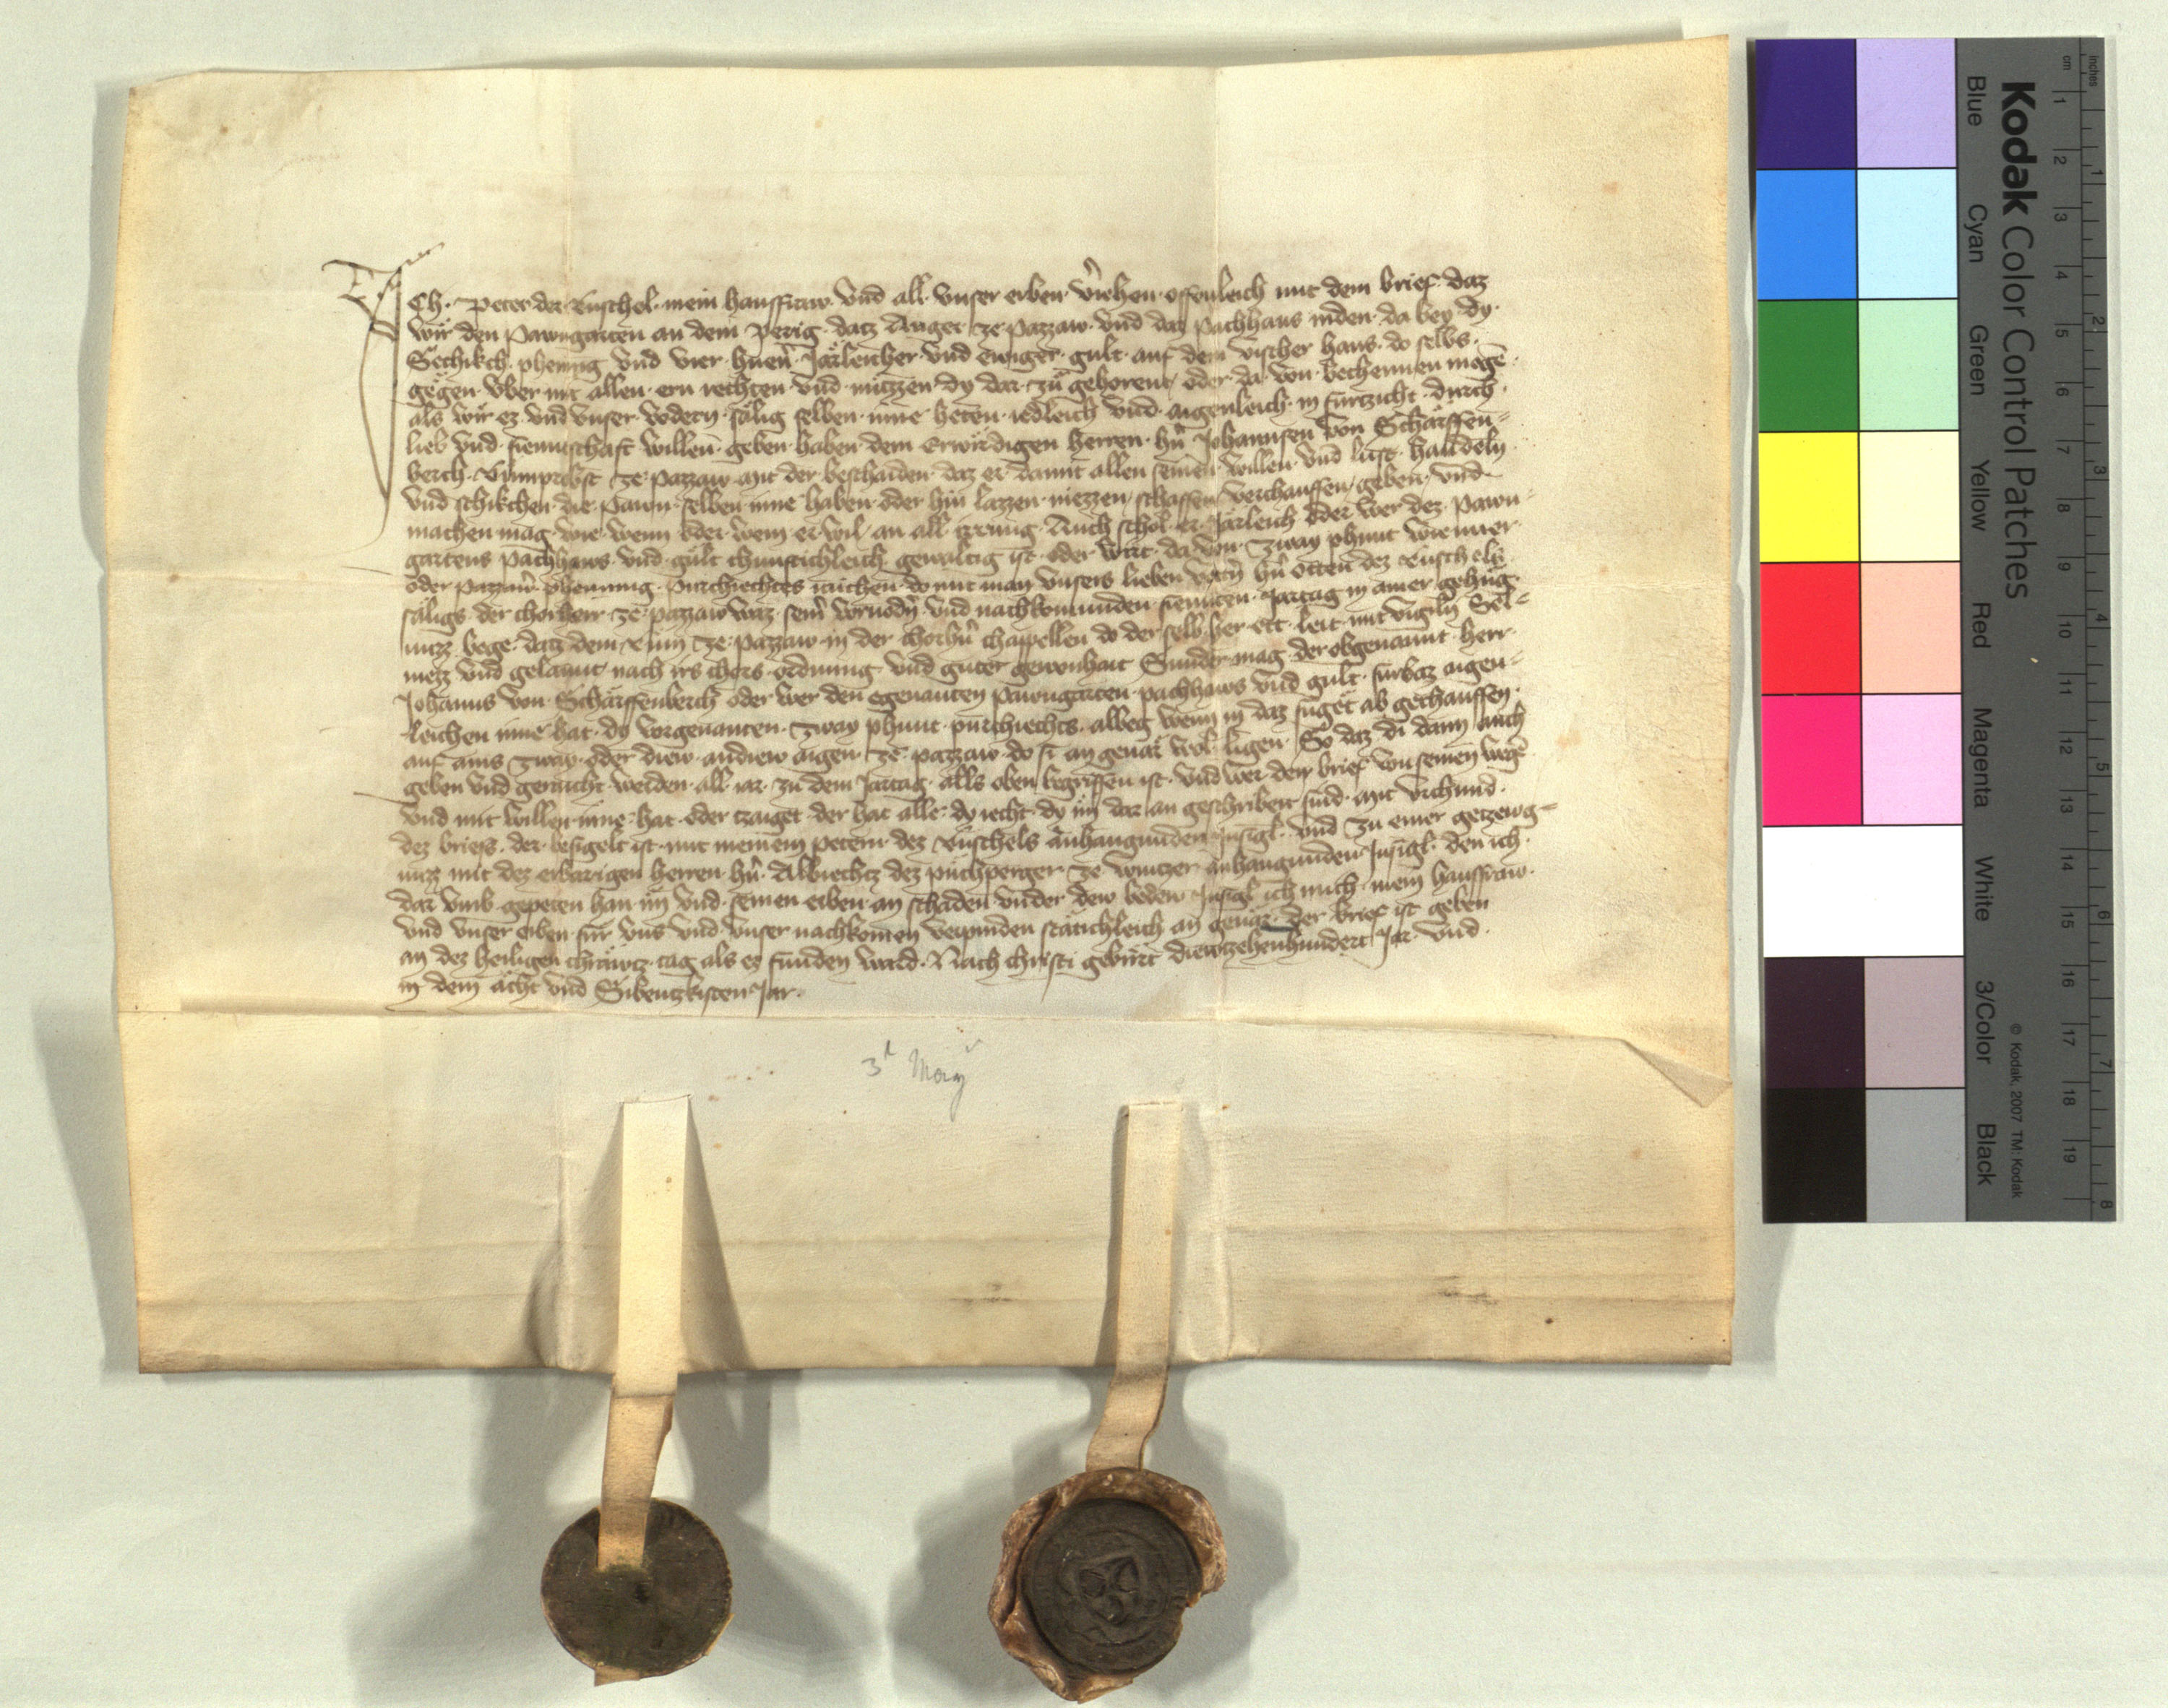 Ich Peter der Tuschel mein hausfraw vnd all vnser erben v̓iehen offenleich mit dem brief daz
wir den Pawngarten an dem perig datz Anger ze Pazzaw vnd daz Pachhaus niden da bey dy
Sechtzikch phening vnd vier huen̓ Järleicher vnd ewiger gult auf dem vischer haus do selbs
gegen vber mit allen ern rechten vnd nützzen dy dar zů gehorent oder da von bechemen mogē
als wir ez vnd vnser vodern sälig selben inne heten ledleich vnd aigenleich in furtzicht durch
lieb vnd friuntschaft willen geben haben dem Erwirdigen herren hn̓ Johannsen von Schärffen=
berch Tumprobst ze Pazzaw mit der beschaiden daz er damit allen seinen willen vnd lust handeln
vnd schikchen die Pawn selben inne haben oder hin lazzen niezzen schaffen verchauffen geben vnd
machen mag wie wenn oder wem er wil an all irrung Auch schol er Järleich oder wer dez Pawn=
gartens Pachhaws vnd gült chunftichleich gewaltig ist oder wirt da von zway phunt wienner
oder Pazzaw̓ phenning Purchrechtes raichen do mit man vnsers lieben vetn̓ hn̓ Otten dez Tuschels
säligs der chorherr ze Pazzaw waz sein̓ vorvodn̓ vnd nachkomunden iartag in ainer gehüg=
nüzz bege datz dem Tum ze Pazzaw in der chorhn̓ chappellen do der selb her Ott leit mit vigily Sel=
mezz vnd gelaut nach irs chors ordnung vnd guter gewonhait Sunder mag der obgenannt herr
Johanns von Schärffenberch oder wer den egenanten Pawngarten pachhaws vnd gult furbaz aigen=
leichen inne hat dy vorgenanten zway phunt purchrechts albeg wenn in daz fuget ab gechauffen
auf ains zway oder drew andrew aigen ze Pazzaw do si an geuär wol ligen So daz di dann auch
geben vnd geraicht werden all iar zu dem Jartag alls oben begriffen ist vnd wer den brief von seinen wegē
vnd mit willen inne hat oder tzaiget der hat alle dy recht dy im dar an geschriben sind mit vrchund
dez briefs der besigelt ist mit meinem Petern dez Tuschels anhangunden Insigl vnd zu einer getzewg=
nüzz mit dez erbärigen herren hn̓ Albrechtz dez puchperger ze wintzer anhangunden Insigl den ich
dar vmb gepeten han im vnd seinen erben an schaden vnder dew beden Insigl ich mich mein hausfraw
vnd vnser erben fur vns vnd vnser nachkomen verpinden stätichleich an geuär der brief ist geben
an dez heiligen chrawtz tag als ez funden ward Nach christi gebürt drewtzehenhundert Jar vnd
in dem acht vnd Sibentzkisten Jar
3t May
Kodak Color Control Patches
Blue Cyan Green Yellow Red Magenta White 3/Color Black
© Kodak, 2007 TM: Kodak
inches 1 2 3 4 5 6 7 8
cm 1 2 3 4 5 6 7 8 9 10 11 12 13 14 15 16 17 18 19